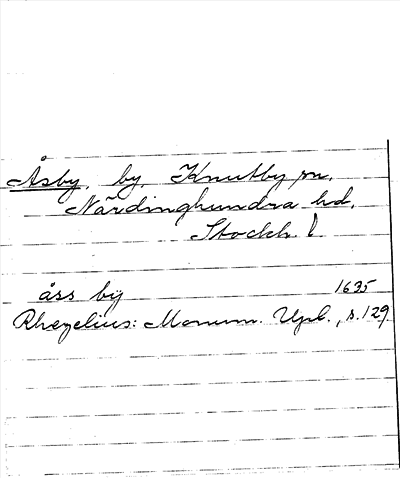 Åsby, by, Knutby sn,
Närdinghundra hd,
Stockh. l
åss by 1635
Rhezelius: Monum. Upl., s. 129